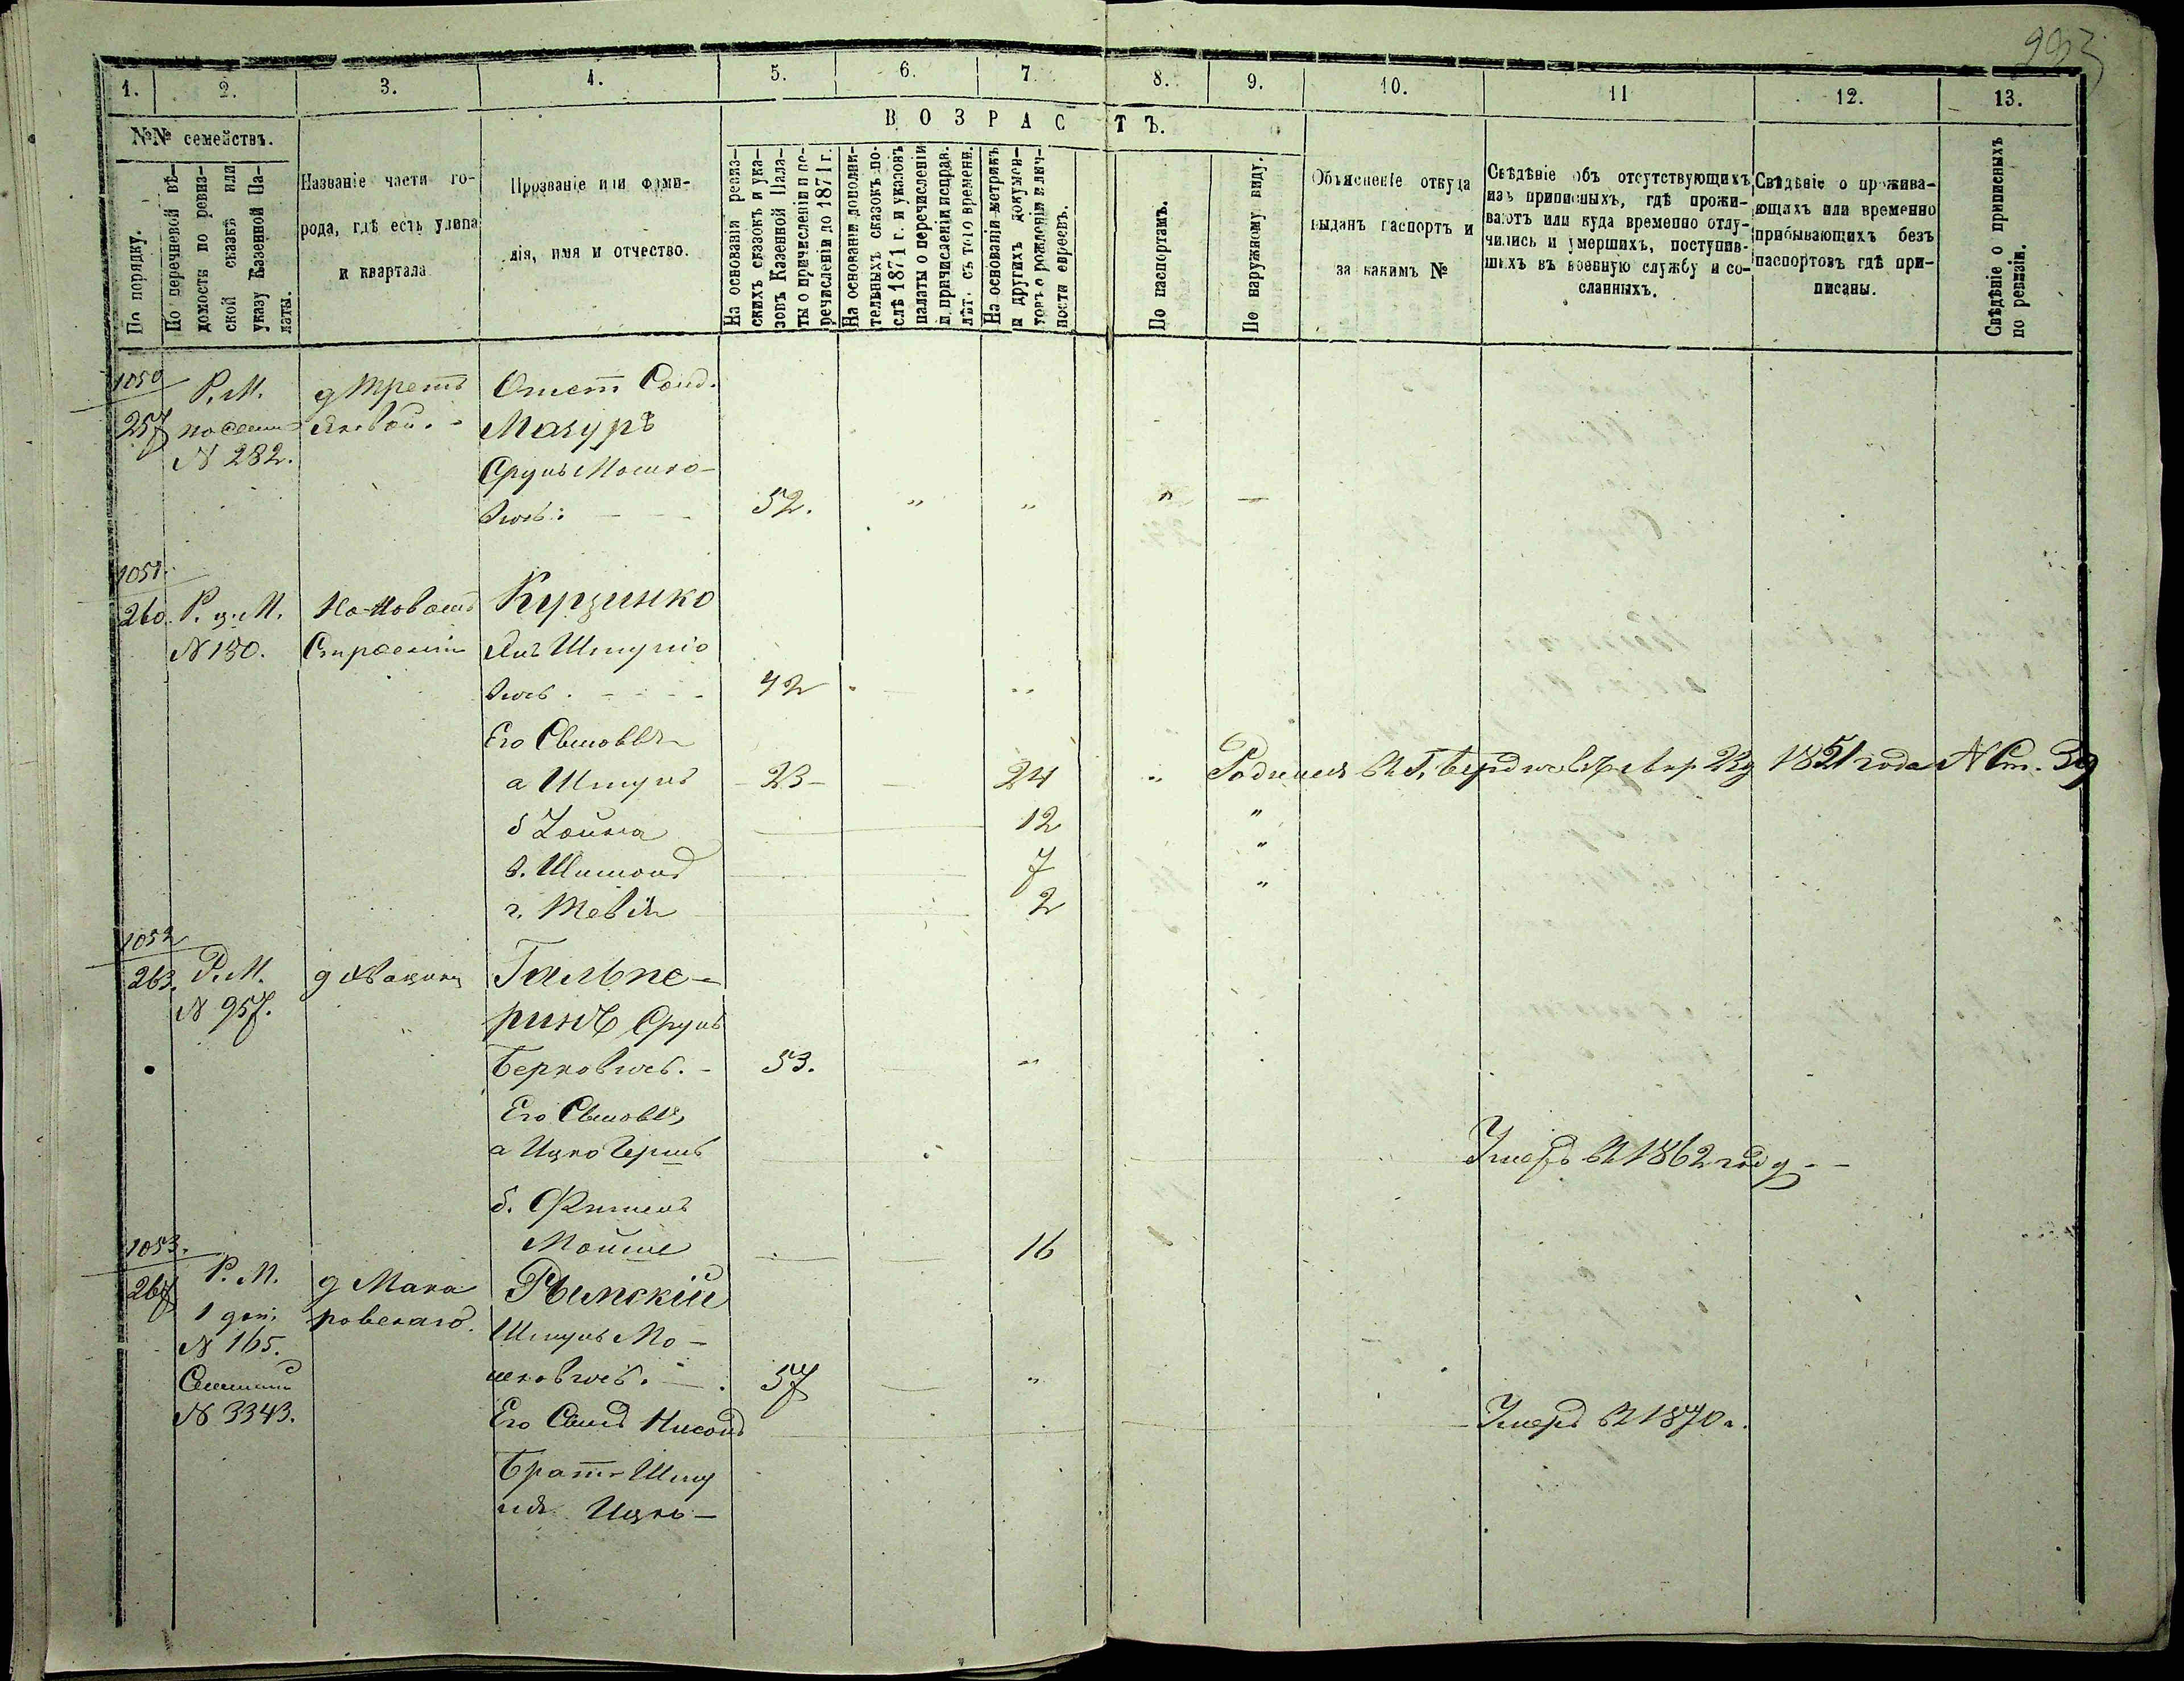 993
1.
2.
3.
4.
5.
6.
7.
8.
9.
10.
11
12.
13.
№№ семействъ.
ВОЗРАСТЪ.
По порядку.
По перечневой вѣ-
домости по ревиз-
ской сказкѣ или
указу Казенной Па-
латы.
Названіе части го-
рода, гдѣ есть улица
и квартала
Прозваніе или фами-
лія, имя и отчество.
На основаніи ревиз-
скихъ сказокъ и ука-
зовъ Казенной Пала-
ты о причисленіи и пе-
речисленіи до 1871 г.
На основаніи дополни-
тельныхъ сказокъ по-
слѣ 1871 г. и указовъ
палаты о перечисленіи
и причисленіи исправ.
лѣт. съ того времени.
На основаніи метрикъ
и другихъ докумен-
товъ о рожденіи и лич-
ности евреевъ.
По паспортамъ.
По наружному виду.
Объясненіе откуда
выданъ паспортъ и
за какимъ №
Свѣдѣніе объ отсутствующихъ
изъ приписныхъ, гдѣ прожи-
ваютъ или куда временно отлу-
чились и умершихъ, поступив-
шихъ въ военную службу и со-
сланныхъ.
Свѣдѣніе о прожива-
ющихъ или временно
прибывающихъ безъ
паспортовъ гдѣ при-
писаны.
Свѣдѣніе о приписныхъ
по ревизіи.
1050 Р. М. Отст Солд.
257 Мазуръ
N 282.
Срулъ Мошко-
вичъ. 52. " " " —
1051.
260. Р. М. На Новомъ
N 150. Строеніи
вичъ. 42
Его Сыновья
а Шмулъ 23 — 24 Родился въ Г. Бердичевѣ 1851 года N Ст. 39
б Хаимъ 12 "
в. Шимонъ 7 "
г. Тевья 2 "
1052
263. Р. М. Гальпе-
N 957. ринъ Срулъ
Берковичъ. 53. "
Его Сыновья
а Ицко Гершъ Умеръ въ 1862 году
б. Фишель
Мойше 16
1053.
267 Р. М. д Мака Рымскій
ровскаго. Шмуль Мо-
N 165.
шковичъ. 57 "
N 3343. Его Сынъ Нисонъ Умеръ въ 1870 г.
Братъ Шму
ля Ицко